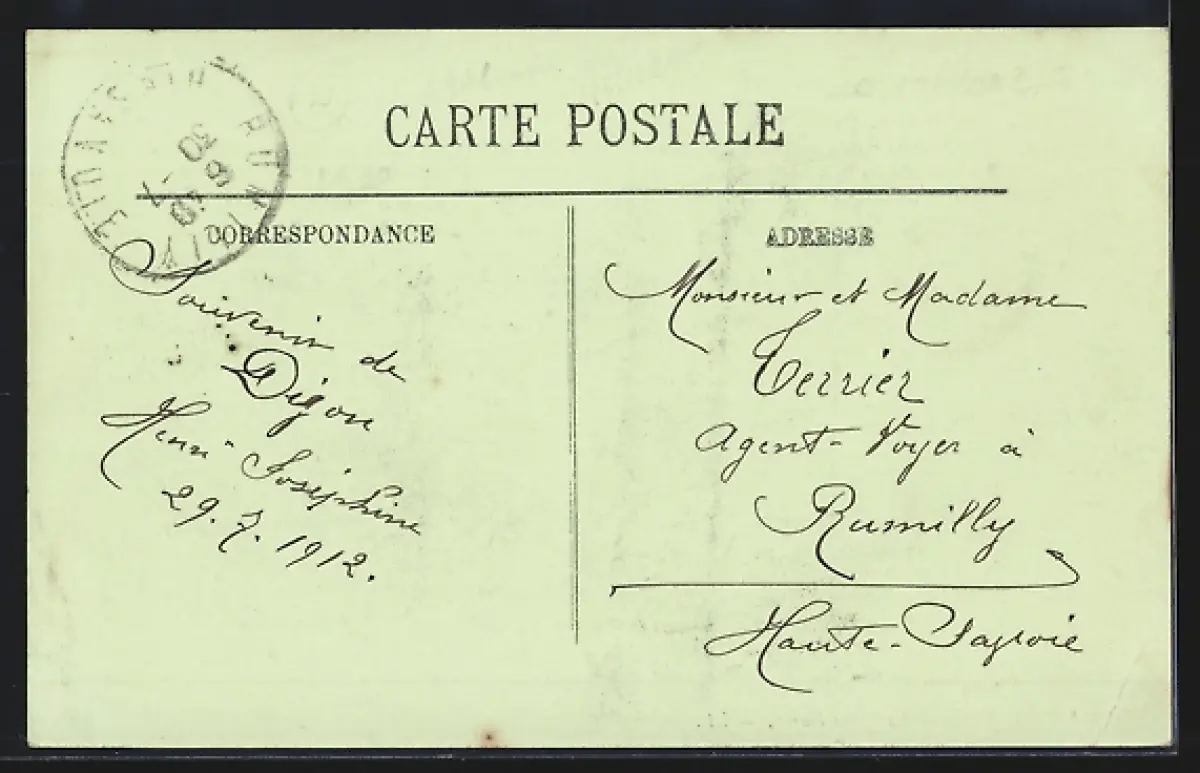 CARTE POSTALE
CORRESPONDANCE
Souvenir de
Dijon
Henri Joséphine
29. 7. 1912.
ADRESSE
Monsieur et Madame
Terrier
Agent-Voyer à
Rumilly
Haute-Savoie
RUMILLY
30 -7